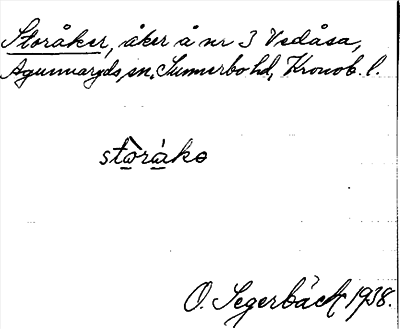 Storåker, åker å nr 3 Vedåsa,
Agunnaryds sn, Sunnerbo hd, Kronob. l.
stòrákɵ
O. Segerbäck 1938.